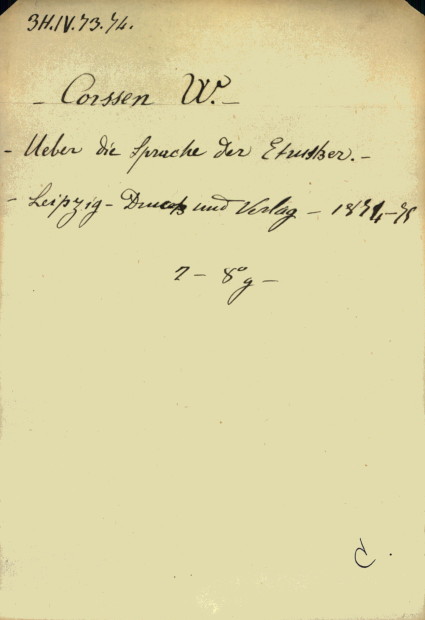 3H.IV.73.74.
- Corssen W. -
- Ueber die Sprache der Etrusker. -
- Leipzig - Druck und Verlag - 1874-75
2 - 8° g -
C.